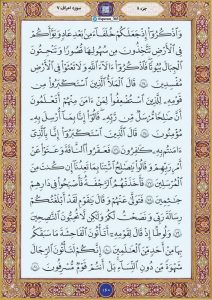 جزء ۸
سوره اعراف ۷
وَاذْكُرُوا إِذْ جَعَلَكُمْ خُلَفَاءَ مِنْ بَعْدِ عَادٍ وَبَوَّأَكُمْ
فِي الْأَرْضِ تَتَّخِذُونَ مِنْ سُهُولِهَا قُصُورًا وَتَنْحِتُونَ
الْجِبَالَ بُيُوتًا فَاذْكُرُوا آلَاءَ اللَّهِ وَلَا تَعْثَوْا فِي الْأَرْضِ
مُفْسِدِينَ ﴿٧٤﴾ قَالَ الْمَلَأُ الَّذِينَ اسْتَكْبَرُوا مِنْ
قَوْمِهِ لِلَّذِينَ اسْتُضْعِفُوا لِمَنْ آمَنَ مِنْهُمْ أَتَعْلَمُونَ
أَنَّ صَالِحًا مُرْسَلٌ مِنْ رَبِّهِ قَالُوا إِنَّا بِمَا أُرْسِلَ بِهِ
مُؤْمِنُونَ ﴿٧٥﴾ قَالَ الَّذِينَ اسْتَكْبَرُوا إِنَّا بِالَّذِي
آمَنْتُمْ بِهِ كَافِرُونَ ﴿٧٦﴾ فَعَقَرُوا النَّاقَةَ وَعَتَوْا عَنْ
أَمْرِ رَبِّهِمْ وَقَالُوا يَا صَالِحُ ائْتِنَا بِمَا تَعِدُنَا إِنْ كُنْتَ مِنَ
الْمُرْسَلِينَ ﴿٧٧﴾ فَأَخَذَتْهُمُ الرَّجْفَةُ فَأَصْبَحُوا فِي دَارِهِمْ
جَاثِمِينَ ﴿٧٨﴾ فَتَوَلَّى عَنْهُمْ وَقَالَ يَا قَوْمِ لَقَدْ أَبْلَغْتُكُمْ
رِسَالَةَ رَبِّي وَنَصَحْتُ لَكُمْ وَلَكِنْ لَا تُحِبُّونَ النَّاصِحِينَ
﴿٧٩﴾ وَلُوطًا إِذْ قَالَ لِقَوْمِهِ أَتَأْتُونَ الْفَاحِشَةَ مَا سَبَقَكُمْ
بِهَا مِنْ أَحَدٍ مِنَ الْعَالَمِينَ ﴿٨٠﴾ إِنَّكُمْ لَتَأْتُونَ الرِّجَالَ
شَهْوَةً مِنْ دُونِ النِّسَاءِ بَلْ أَنْتُمْ قَوْمٌ مُسْرِفُونَ ﴿٨١﴾
۱۶۰